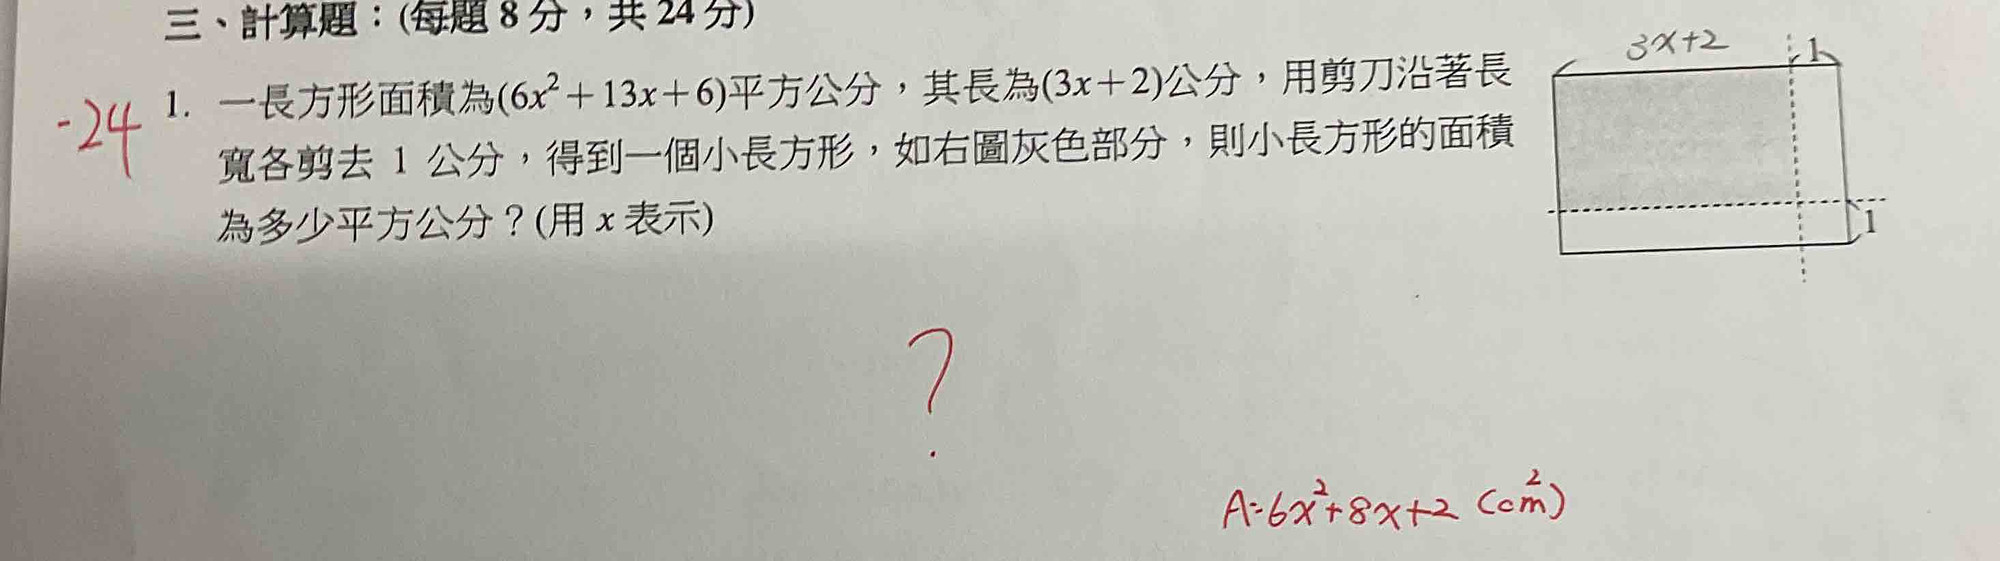 三、計算題：(每題 8 分，共 24 分)
-24
1. 一長方形面積為(6x²＋13x＋6)平方公分，其長為(3x＋2)公分，用剪刀沿著長
寬各剪去 1 公分，得到一個小長方形，如右圖灰色部分，則小長方形的面積
為多少平方公分？(用 x 表示)
3x+2
1
1
?
A=6x²+8x+2 (cm²)